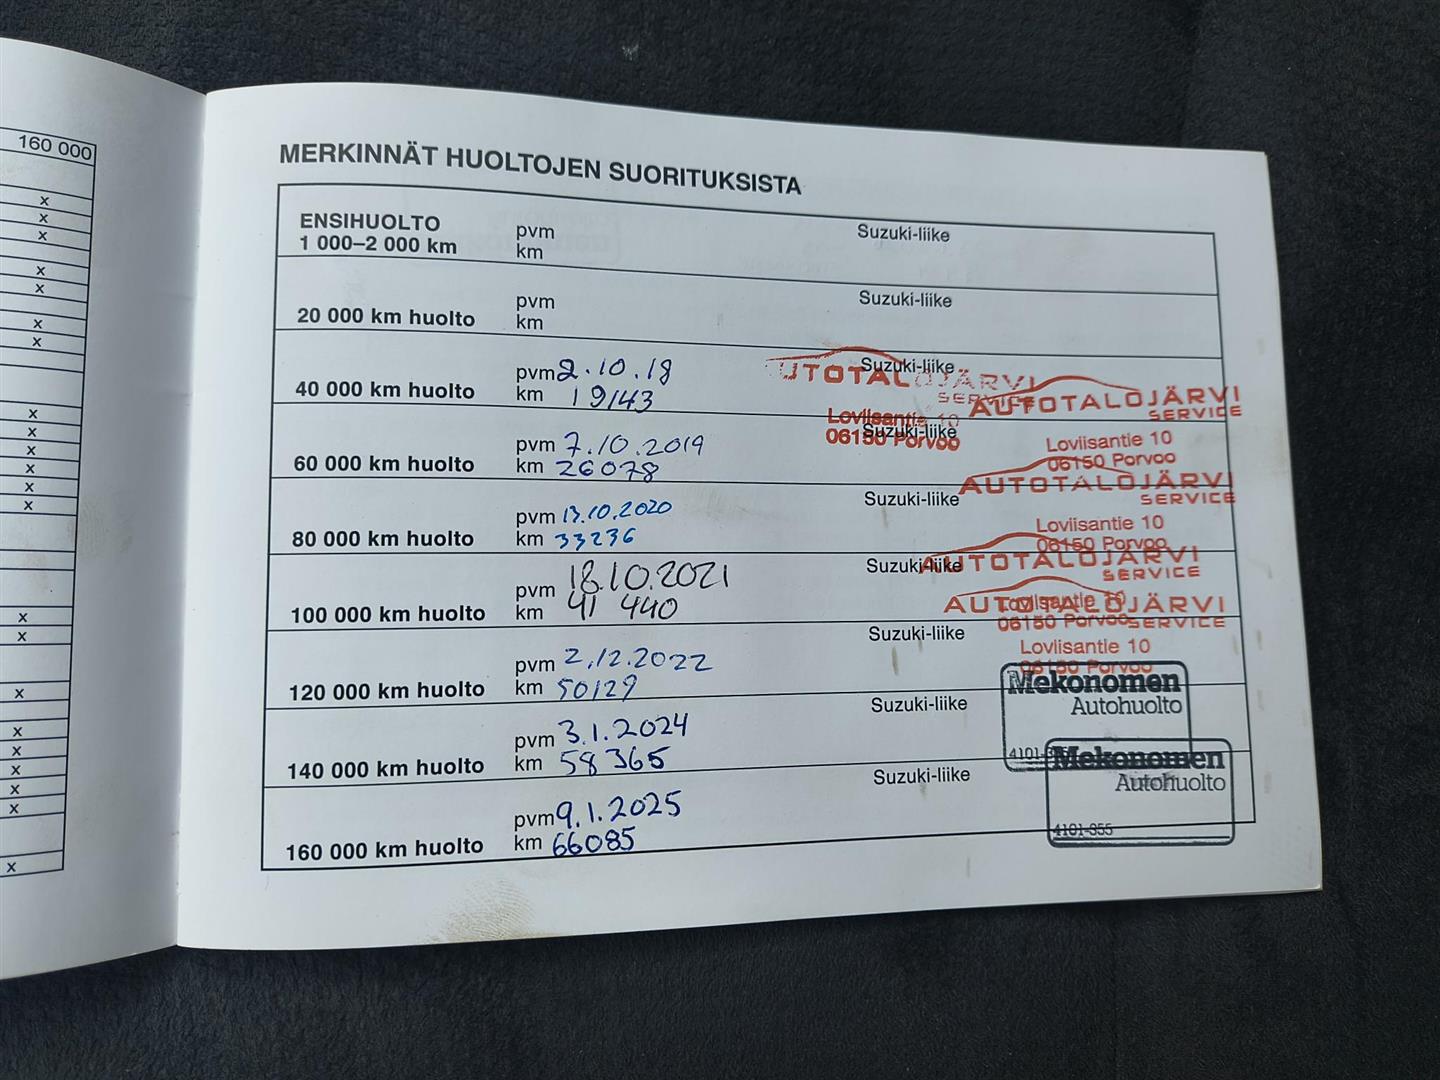 160 000
x
x
x
x
x
x
x
x
x
x
x
x
x
x
x
x
x
x
x
x
x
x
MERKINNÄT HUOLTOJEN SUORITUKSISTA
ENSIHUOLTO pvm Suzuki-liike
1 000–2 000 km km
pvm Suzuki-liike
20 000 km huolto km
pvm 2.10.18 Suzuki-liike
40 000 km huolto km 19143
AUTOTALOJÄRVI
SERVICE
Loviisantie 10
06150 Porvoo
pvm 7.10.2019 Suzuki-liike
60 000 km huolto km 26078
AUTOTALOJÄRVI
SERVICE
Loviisantie 10
06150 Porvoo
pvm 13.10.2020 Suzuki-liike
80 000 km huolto km 33236
AUTOTALOJÄRVI
SERVICE
Loviisantie 10
06150 Porvoo
pvm 18.10.2021 Suzuki-liike
100 000 km huolto km 41 440
AUTOTALOJÄRVI
SERVICE
Loviisantie 10
06150 Porvoo
pvm 2.12.2022 Suzuki-liike
120 000 km huolto km 50129
AUTOTALOJÄRVI
SERVICE
Loviisantie 10
06150 Porvoo
pvm 3.1.2024 Suzuki-liike
140 000 km huolto km 58365
Mekonomen
Autohuolto
pvm 9.1.2025 Suzuki-liike
160 000 km huolto km 66085
Mekonomen
Autohuolto
4101-355